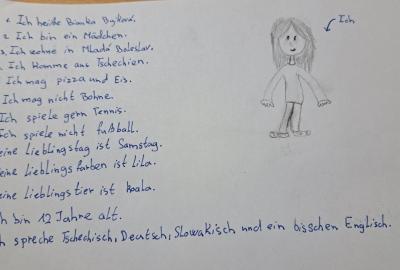 1. Ich heiße Bianka Bytková.
2. Ich bin ein Mädchen.
3. Ich wohne in Mladá Boleslav.
. Ich komme aus Tschechien.
Ich mag pizza und Eis.
Ich mag nicht Bohne.
Ich spiele gern Tennis.
Ich spiele nicht fußball.
eine Lieblingstag ist Samstag.
eine Lieblingsfarben ist Lila.
eine Lieblingstier ist Koala.
h bin 12 Jahre alt.
h spreche Tschechisch, Deutsch, Slowakisch und ein bisschen Englisch.
Ich